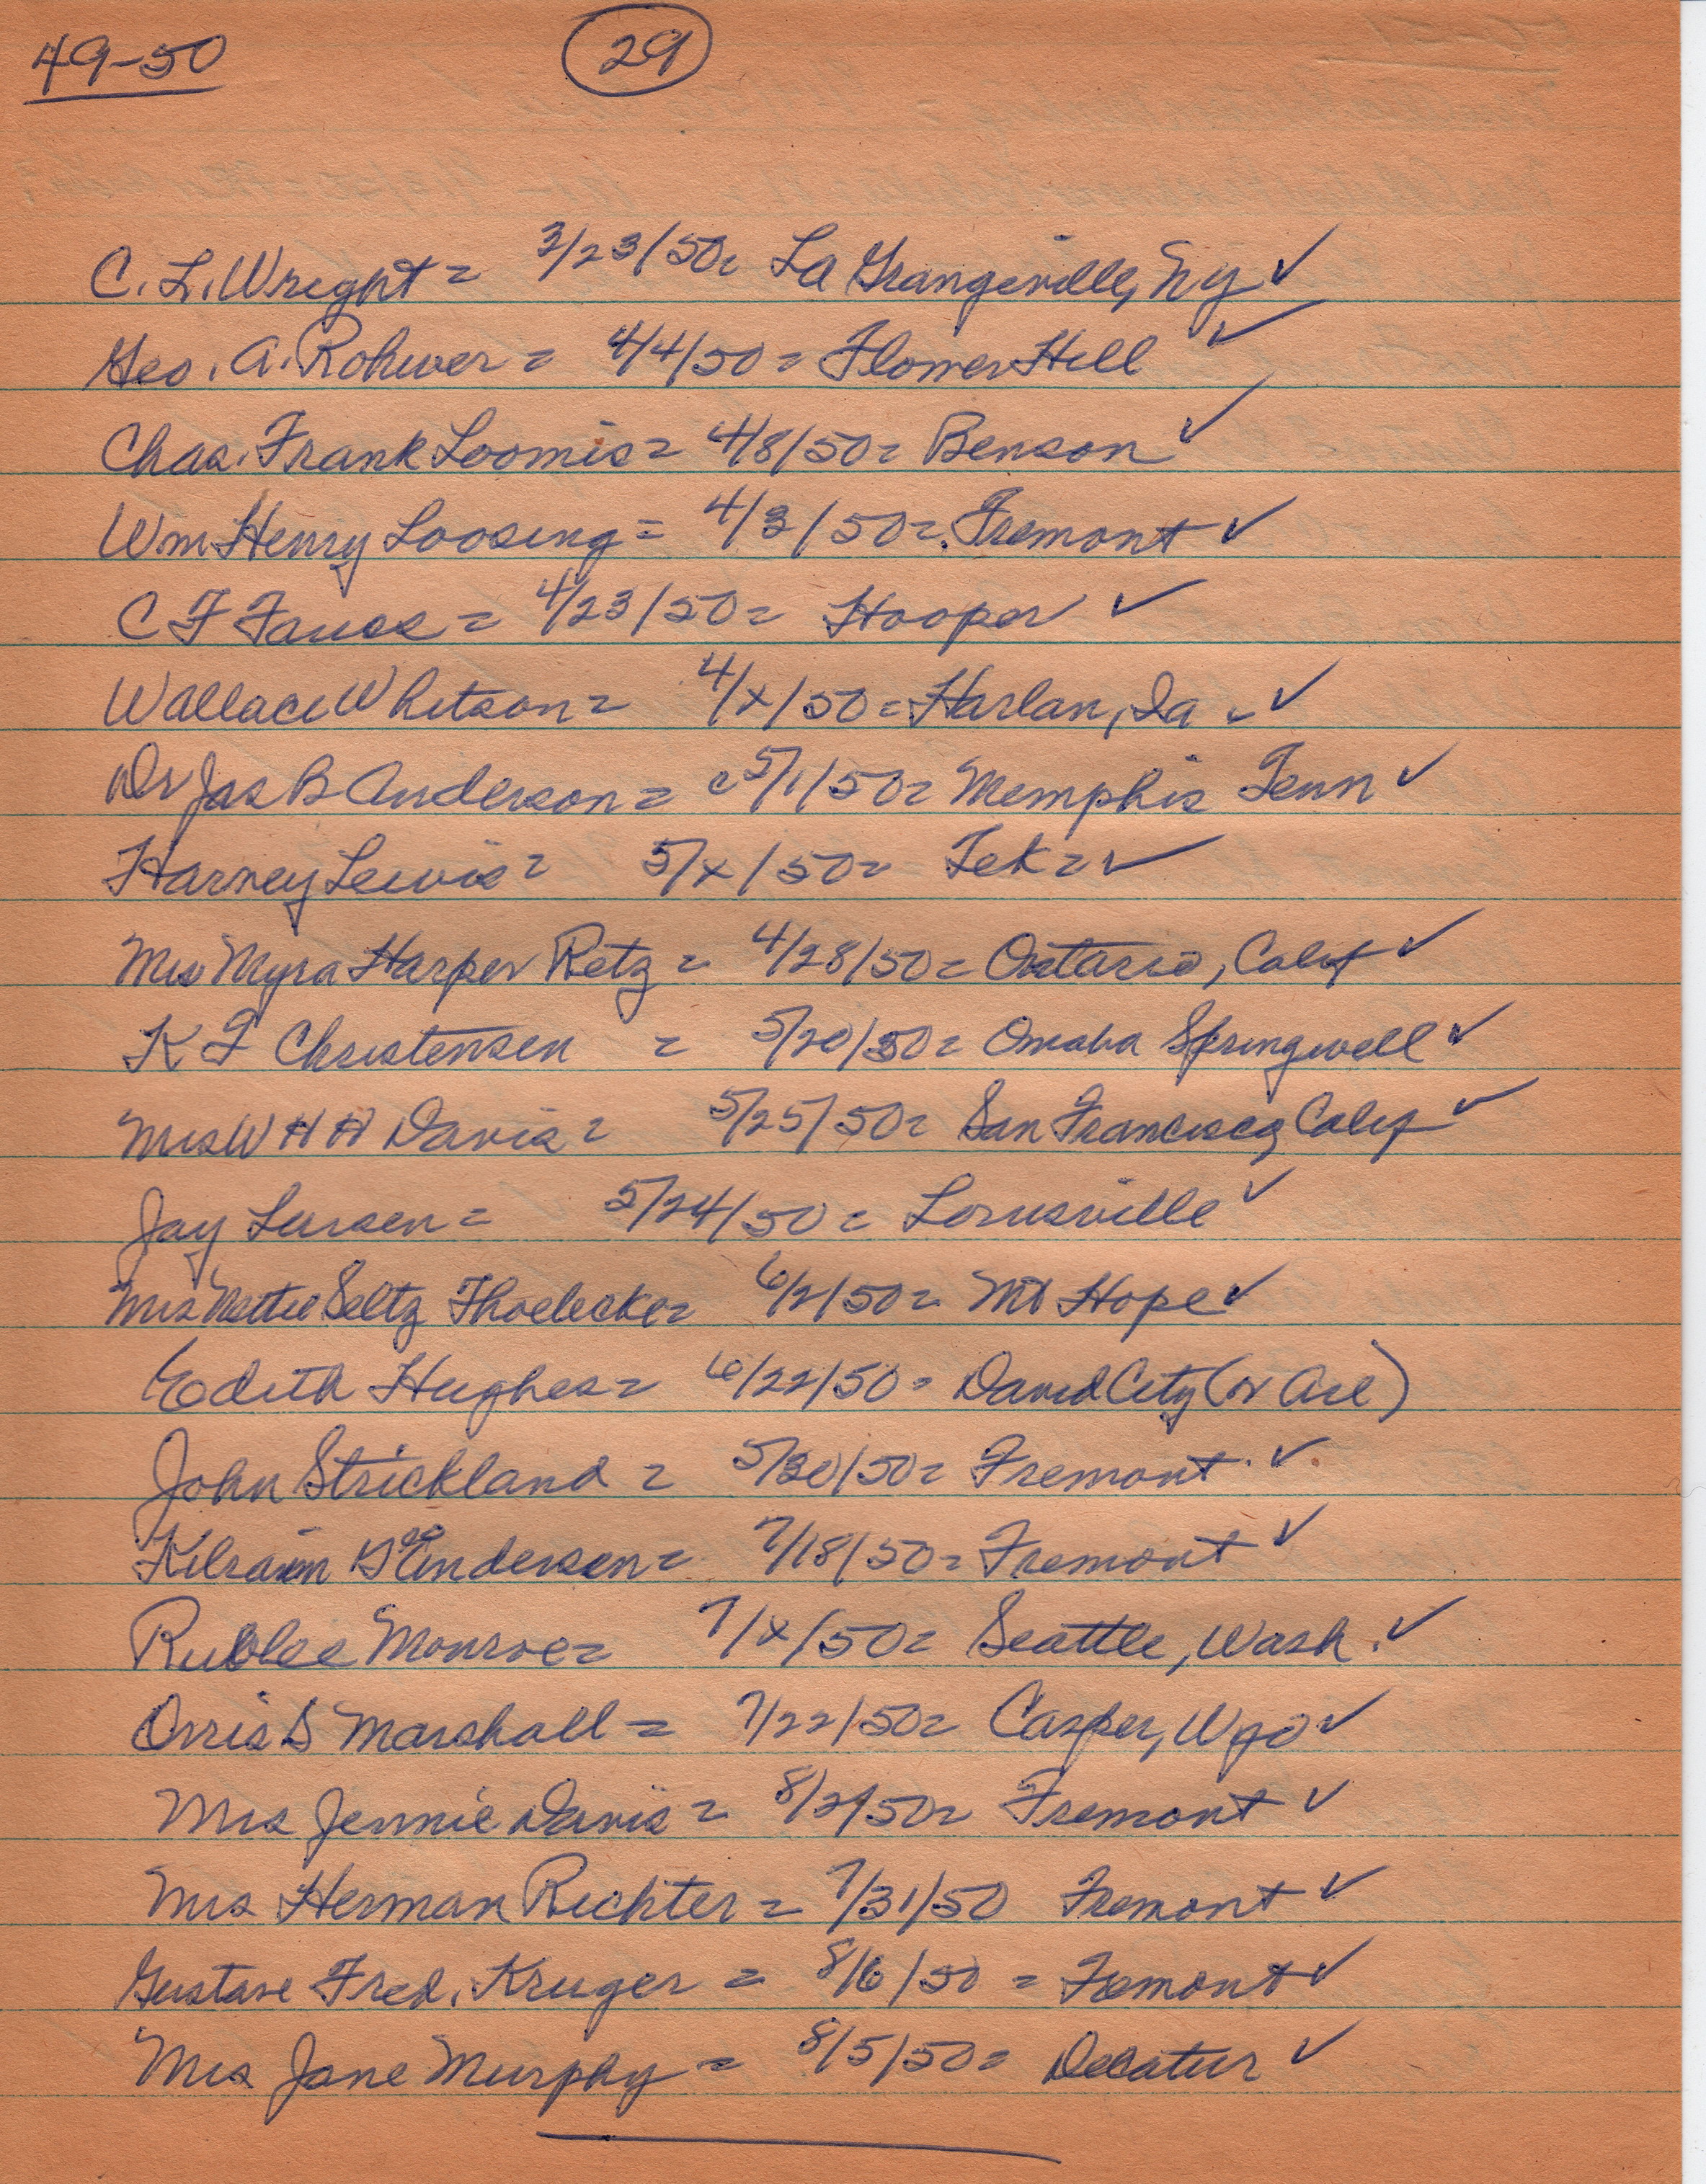 49-50 29
C. L. Wright = 3/23/50= La Grangeville, Ny ✓
Geo. A. Rohwer = 4/4/50 = Flower Hill ✓
Chas. Frank Loomis = 4/8/50= Benson ✓
Wm Henry Loosing = 4/3/50=. Fremont ✓
C F = 4/23/50= Hooper ✓
Wallace Whitson = 4/x/50 = Harlan, Ia ✓
Dr Jas B Anderson = c 5/1/50= Memphis Tenn ✓
Harvey Lewis = 5/x/50= Tek = ✓
Mrs Myra Harper Retz = 4/28/50 = Ontario, Calif ✓
K F Christensen = 5/20/50= Omaha Springwell ✓
Mrs W H H Davis = 5/25/50= San Francisco, Calif ✓
Jay Larsen = 5/24/50 = Louisville ✓
Mrs Nettie Seltz Thoelecke = 6/2/50= Mt Hope ✓
Edith Hughes = 6/22/50= David City (or Ace)
John Strickland = 5/30/50= Fremont. ✓
Andersen = 7/18/50= Fremont ✓
Rublee Monroe = 7/x/50= Seattle, Wash. ✓
Orris S Marshall = 7/22/50= Casper, Wyo ✓
Mrs Jennie Davis = 8/2/50= Fremont ✓
Mrs Herman Richter = 7/31/50 Fremont ✓
Gustave Fred. Kruger = 8/6/50 = Fremont ✓
Mrs Jane Murphy = 8/5/50= Decatur ✓